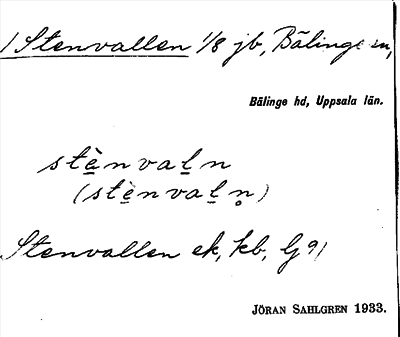 1 Stenvallen 1/8 jb, Bälinge sn,
Bälinge hd, Uppsala län.
stè̱nvaḻn
(stè̱nvaḻn̥)
Stenvallen ek, kb, G 91
JÖRAN SAHLGREN 1933.